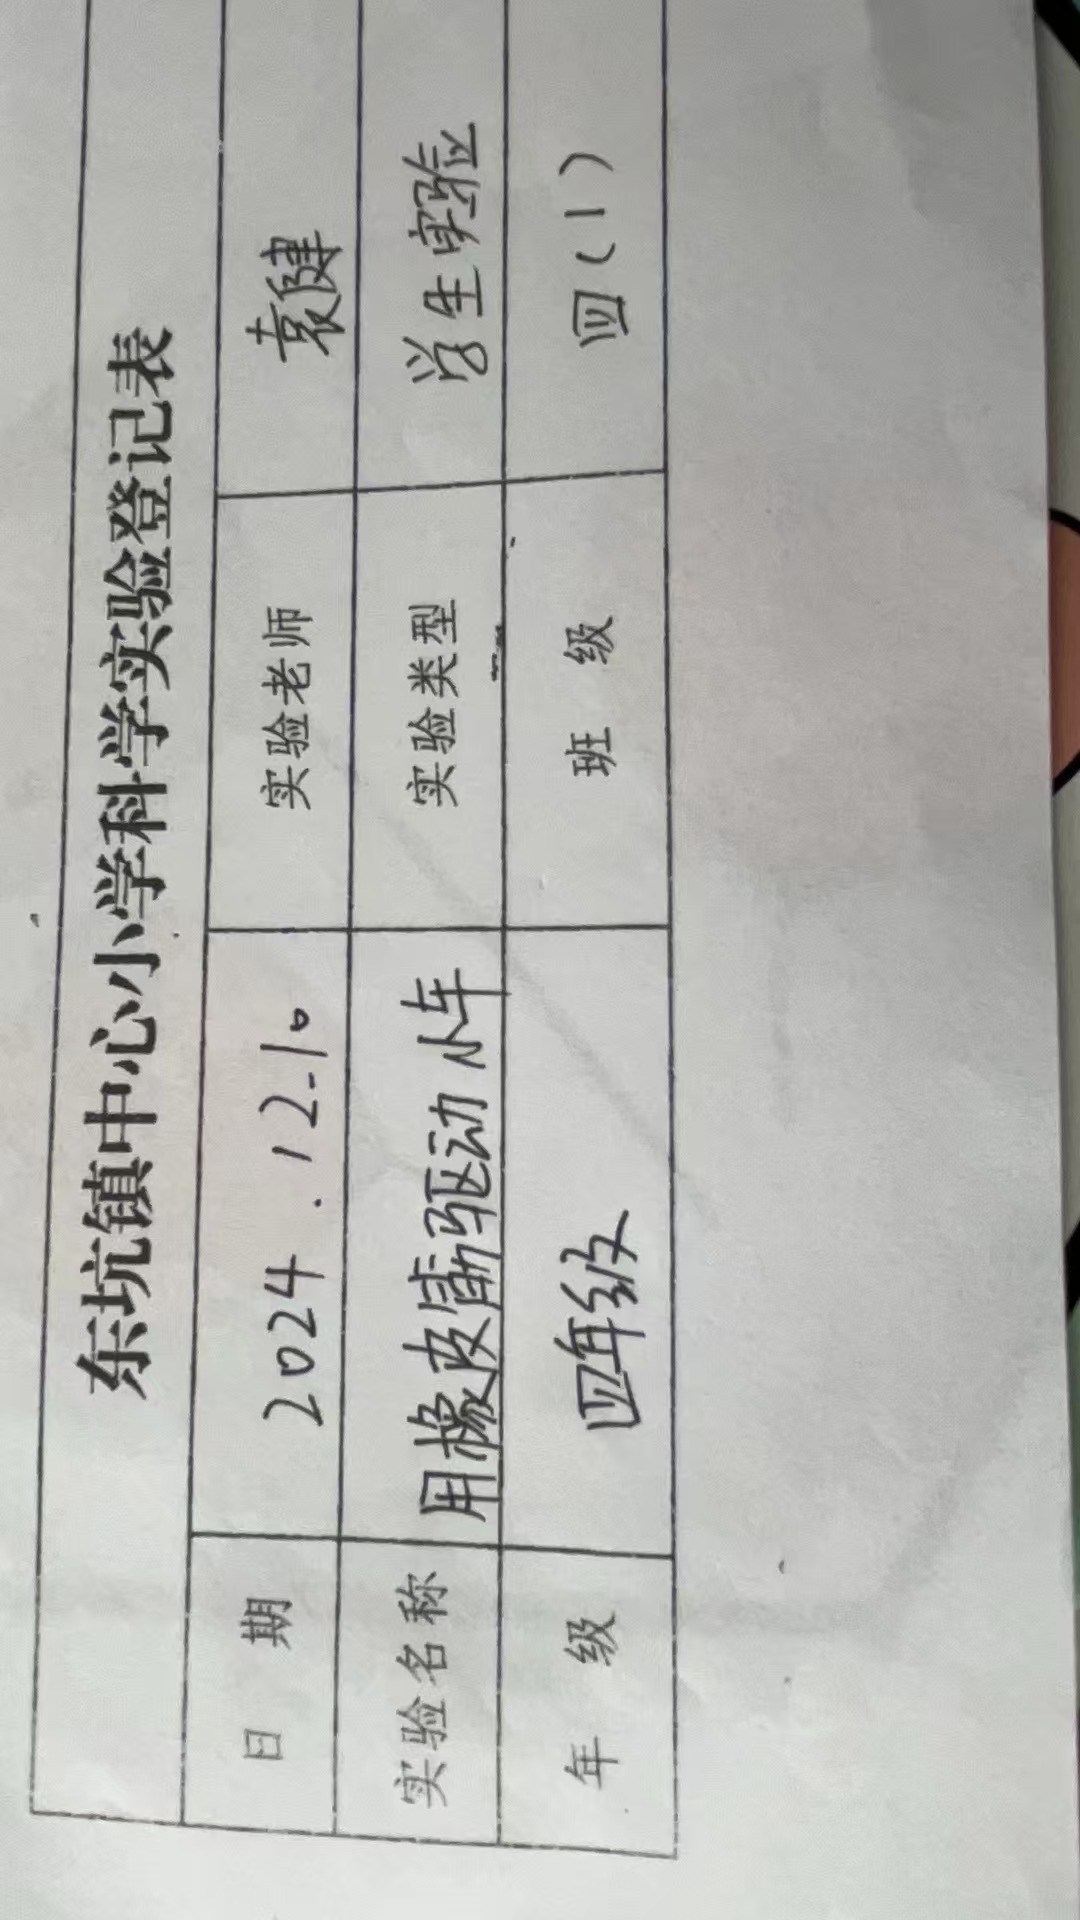 东坑镇中心小学科学实验登记表
日 期 2024.12.10 实验老师 袁健
实验名称 用橡皮筋驱动小车 实验类型 学生实验
年 级 四年级 班 级 四(1)